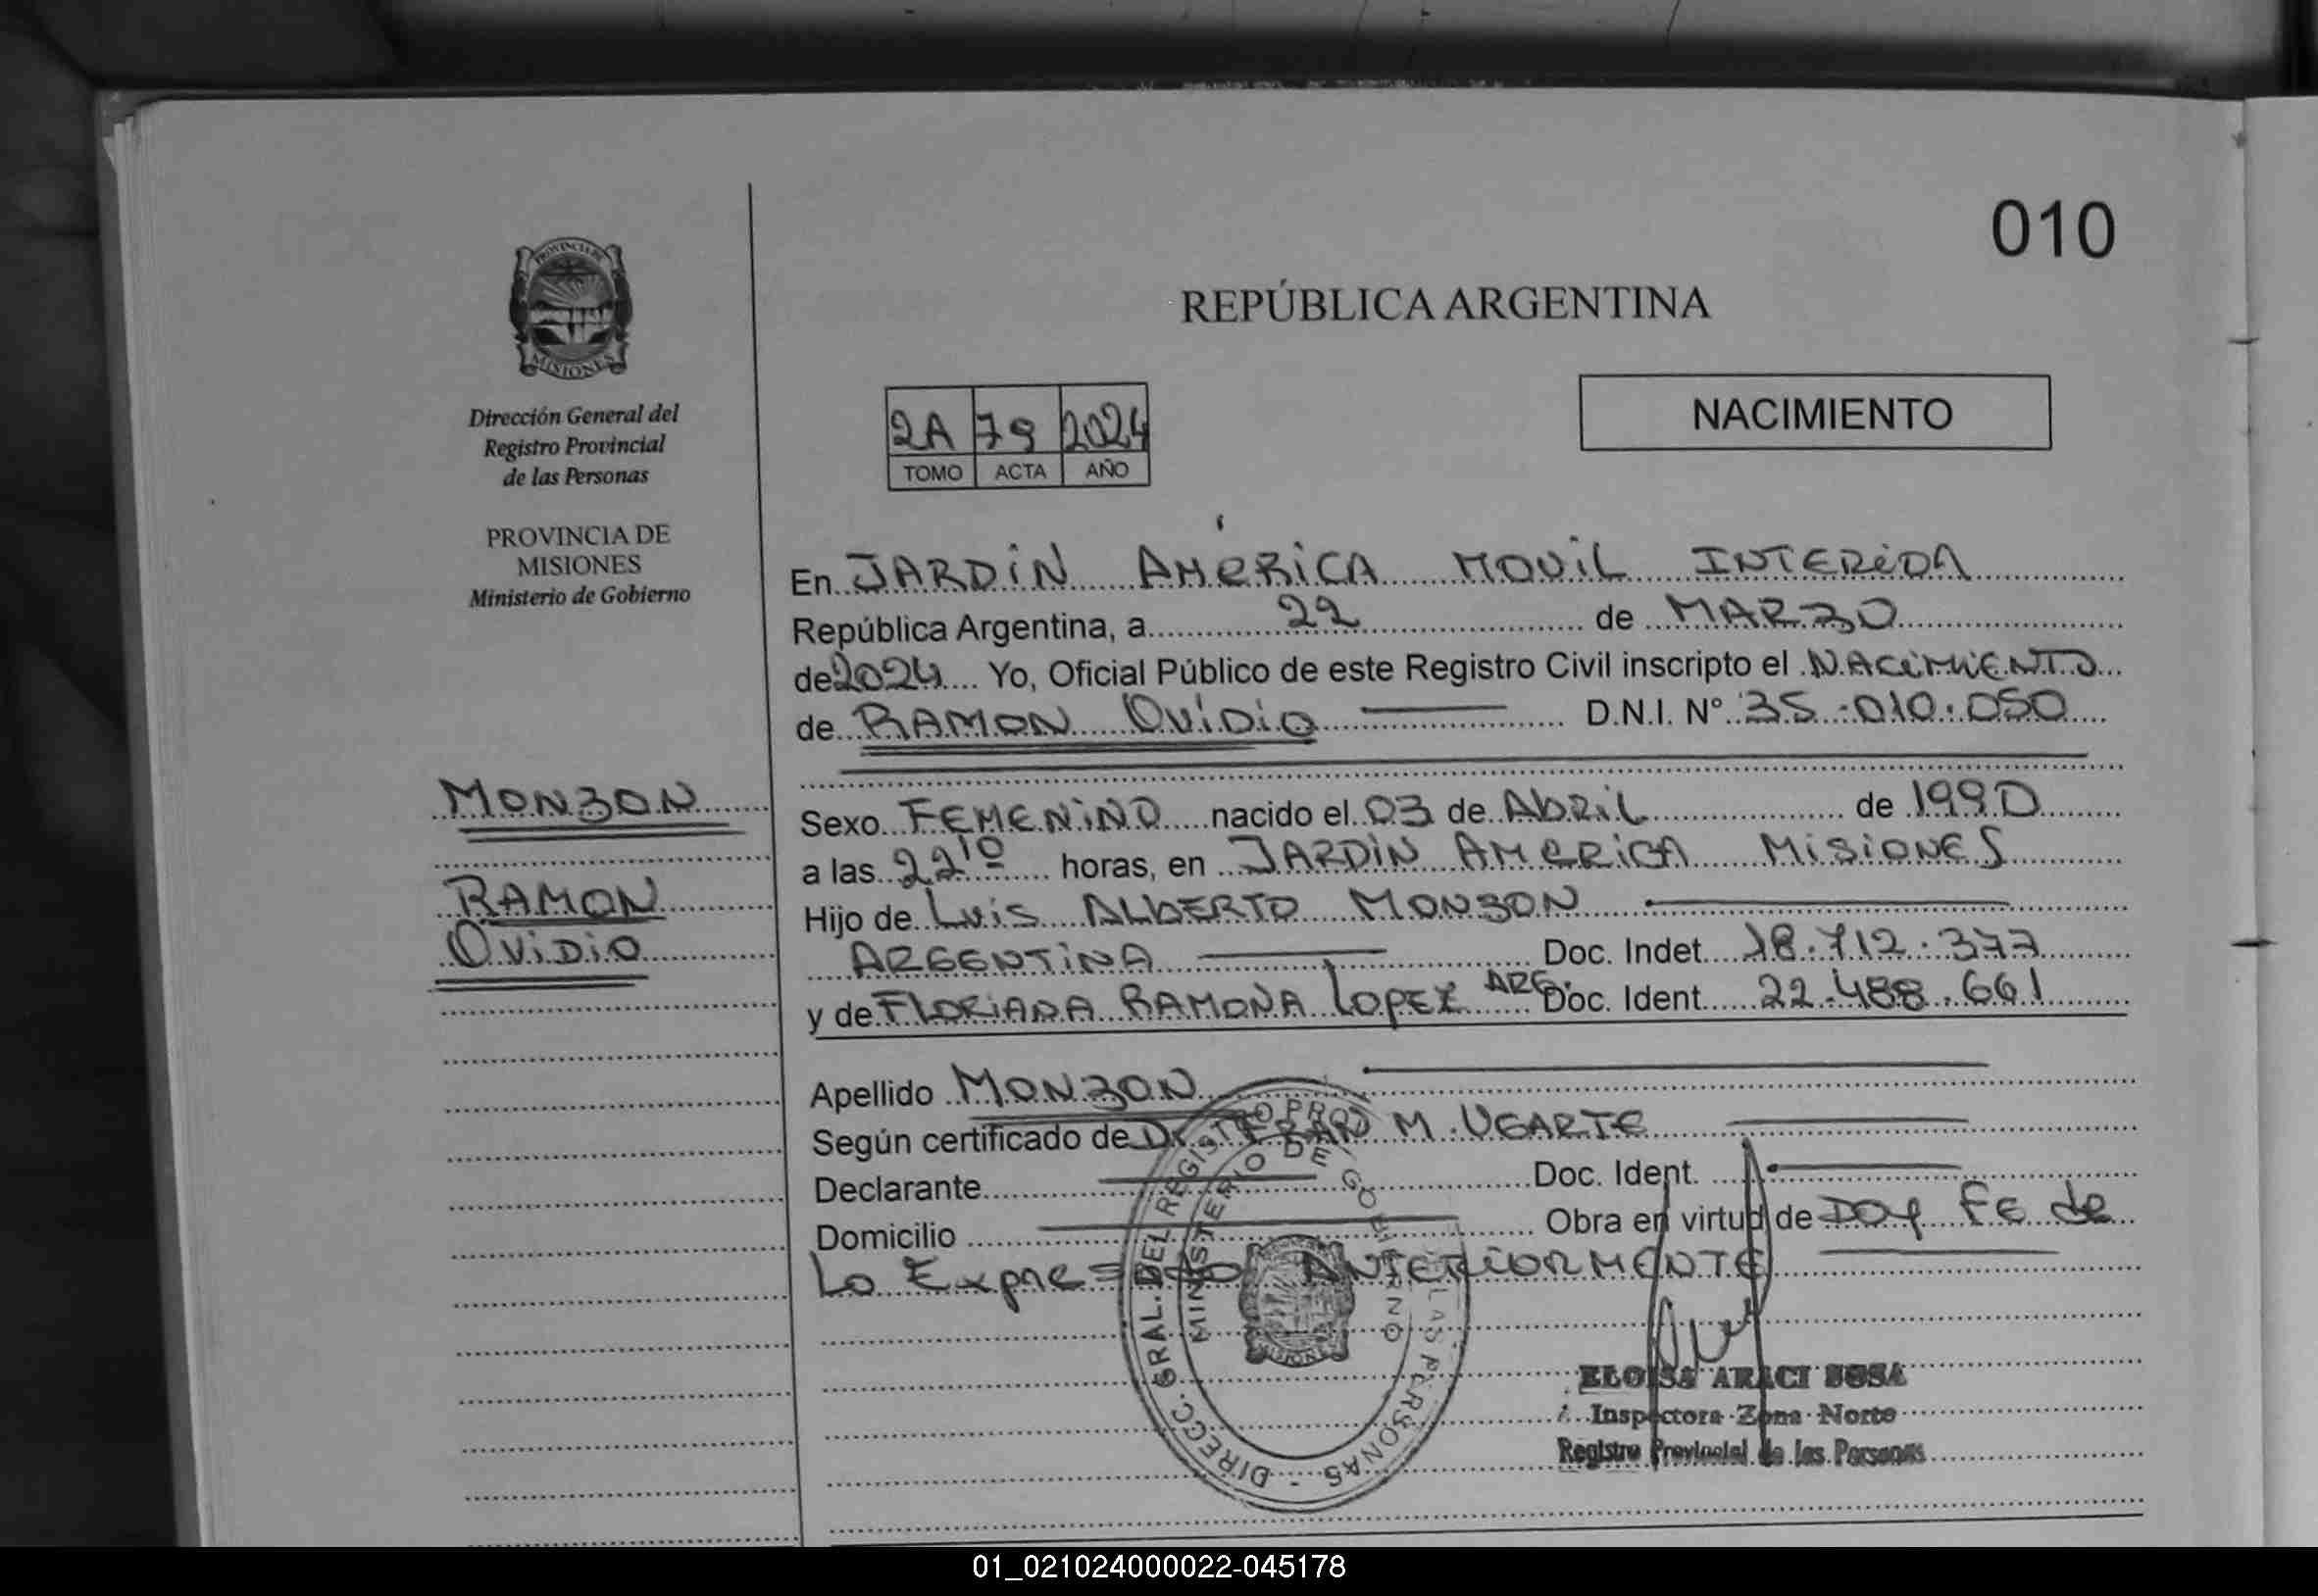 010
PROVINCIA DE
MISIONES
Dirección General del
Registro Provincial
de las Personas
PROVINCIA DE
MISIONES
Ministerio de Gobierno
REPÚBLICA ARGENTINA
NACIMIENTO
2A 79 2024
TOMO ACTA AÑO
MONZON
RAMON
OVIDIO
En JARDIN AMERICA MOVIL
República Argentina, a 22 de MARZO
de 2024 Yo, Oficial Público de este Registro Civil inscripto el NACIMIENTO
de RAMON OVIDIO D.N.I. N° 35.010.050
Sexo FEMENINO nacido el 03 de ABRIL de 1990
a las 22 10 horas, en JARDIN AMERICA MISIONES
Hijo de LUIS ALBERTO MONZON
ARGENTINA Doc. Indet. 18.712.377
y de RAMONA LOPEZ ARG. Doc. Ident. 22.488.661
Apellido MONZON
Según certificado de M. UGARTE
Declarante Doc. Ident.
Domicilio Obra en virtud de DOY FE de
Lo Expresado ANTERIORMENTE
DIRECC. GRAL. DEL REGISTRO PROV. DE LAS PERSONAS -
MINISTERIO DE GOBIERNO
MISIONES
ELOISA ARACI SOSA
Inspectora Zona Norte
Registro Provincial de las Personas
01_021024000022-045178